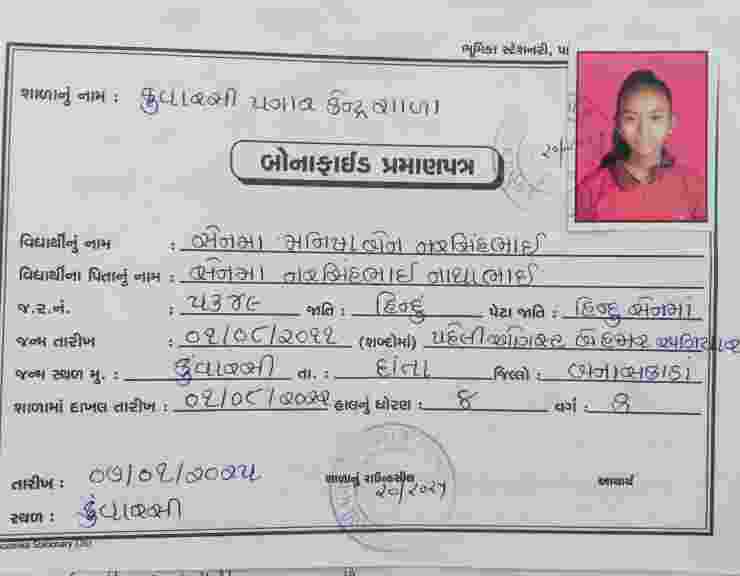 ભૂમિકા સ્ટેશનરી,
શાળાનું નામ : કુંવારસી પગાર કેન્દ્ર શાળા
બોનાફાઈડ પ્રમાણપત્ર
વિદ્યાર્થીનું નામ : સેનમા મનિષાબેન નરસિંહભાઈ
વિદ્યાર્થીના પિતાનું નામ : સેનમા નરસિંહભાઈ નાથાભાઈ
જ.ર.નં. : ૫૩૪૯ જાતિ : હિન્દુ પેટા જાતિ : હિન્દુ સેનમાં
જન્મ તારીખ : ૦૧/૦૮/૨૦૧૧ (શબ્દોમાં) પહેલી ઓગસ્ટ બેહજાર અગિયાર
જન્મ સ્થળ મુ. : કુંવારસી તા. : દાંતા જિલ્લો : બનાસકાંઠા
શાળામાં દાખલ તારીખ : ૦૧/૦૮/૨૦૨૨ હાલનું ધોરણ : ૪ વર્ગ : ૧
તારીખ : ૦૭/૦૧/૨૦૨૫ શાળાનું રાઉન્ડસીલ આચાર્ય
૨૦/૨૦૨૫
સ્થળ : કુંવારસી